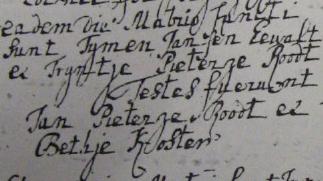 eadem die Matrio: juncti
sunt Tymen Janssen Lewalt
et Tryntje Pieterze Roodt
Testes fuerunt
Jan Pieterze Roodt et
Bethje Kosters